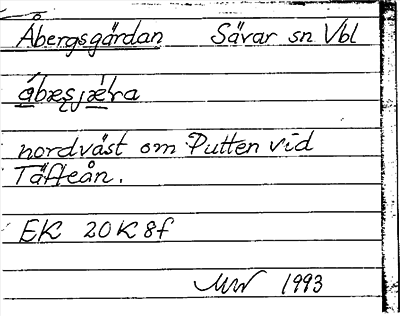 Åbergsgärdan Sävar sn Vbl
nordväst om Putten vid
Täfteån.
EK 20K8f
MW 1993